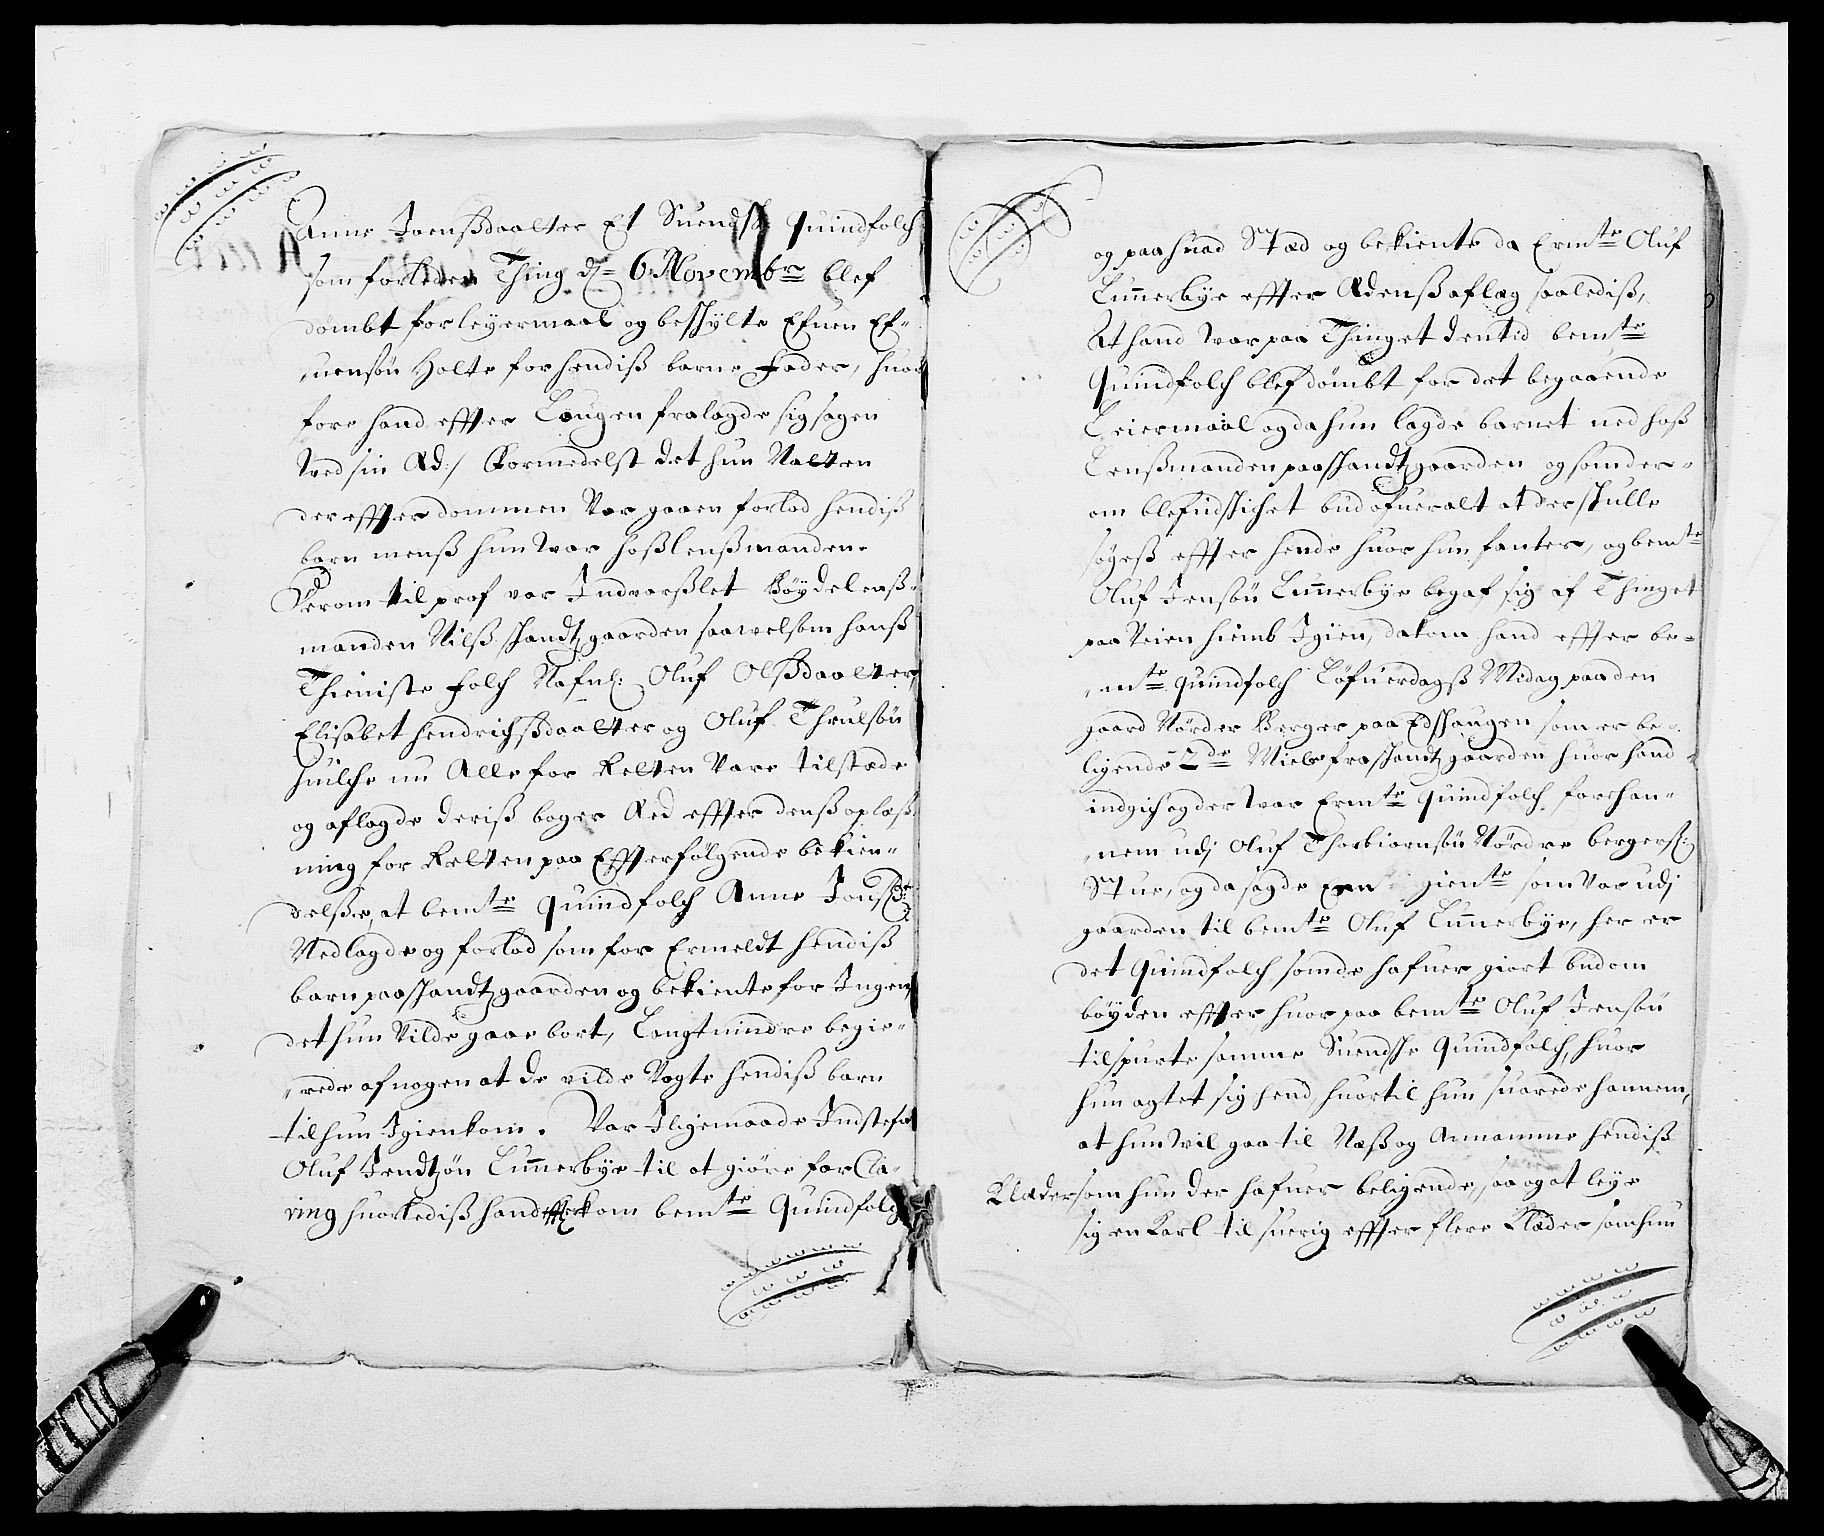 Anne Joensdaatter Et Suendsk quindfolch
som forleden Thing d: 6 Novembr blef
dømbt for leyermaal og beskylte Efuen Ef-
uensøn Holte for hendiß barne fader, huor
fore hand effter Laugen fralagde sig sagen
Wed sin Æd:/ Formedelst det hun Natten
der effter dommen Var gaaen forlod hendiß
barn menß hun War hoß Lenßmanden.
Herom til prof var Indvarßlet Bøydelenß-
manden Nilß skandtzgaarden saawelsom hanß
Thieniste folch Nafnl: Oluf Olßdaatter,
Elisabet hendrichßdaatter og Oluf Thrulsøn
huilche nu Alle for Retten Vare tilstæde
og aflagde deriß boger Æed effter denß oplæß-
ning for Retten paa Effterfølgende bekien-
delße, at bemte quindfolch Anne Jonßd:
Nedlagde og forlod som for Ermeldt hendiß
barn paa skandtzgaarden og bekiente for Ingen,
det hun Vilde gaae bort, Langt mindre begie-
rede af nogen at de vilde Vogte hendiß barn
til hun Igien kom. Var Iligemaade Indstefnt
Oluf Jendtzøn Lunnerbye til at giøre forCla-
ring huorlediß hand effterkom bemte Quindfolch
og paa huad Stæd og bekiente da Ermte Oluf
Lunnerbye effter Ædenß aflæg saalediß,
At hand War paa Thinget den tid bemte
Quindfolch blef dømbt for det begaaende
Leiermaal og da hun lagde barnet ned hoß
Lenßmanden paa skandtzgaarden og som der-
om blef udskichet bud ofueralt at der skulle
søgeß effter hende huor hun fantes, og bemte
Oluf Jensøn Lunnerbye begaf sig af Thinget
paa Veien hiemb Igien, da kom hand effter be-
mte quindfolch Løfuerdagß Midag paa den
gaard Nørder Berger paa Edshaugen som er be-
ligende 2de Miele fra skandtzgaarden huor hand
indgich og der War Ermte quindfolch forehan-
nem udj Oluf Thorbiørnsøn Nørdre bergerß:
Stue, og da sagde Een giente som Var udj
gaarden til bemte Oluf Lunnerbye, her er
det quindfolch som de hafuer giort bud om
bøyden effter huor paa bemte Oluf Jensøn
tilspurte samme Suendshe Quindfolch, huor
hun agtet sig hend, huortil hun suarede hannem,
at hun Wil gaa til Næß og Annamme hendiß
Klæder som hun der hafuer beligende, saa og at leye
sig en Karl til suerig effter flere Klæder som hun